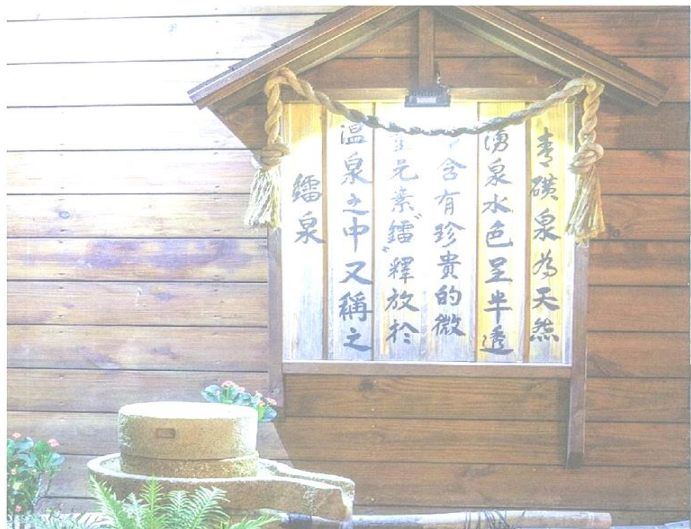 青磺泉為天然
湧泉水色呈半透
含有珍貴的微
元素"鐳"釋放於
溫泉之中又稱之
鐳泉